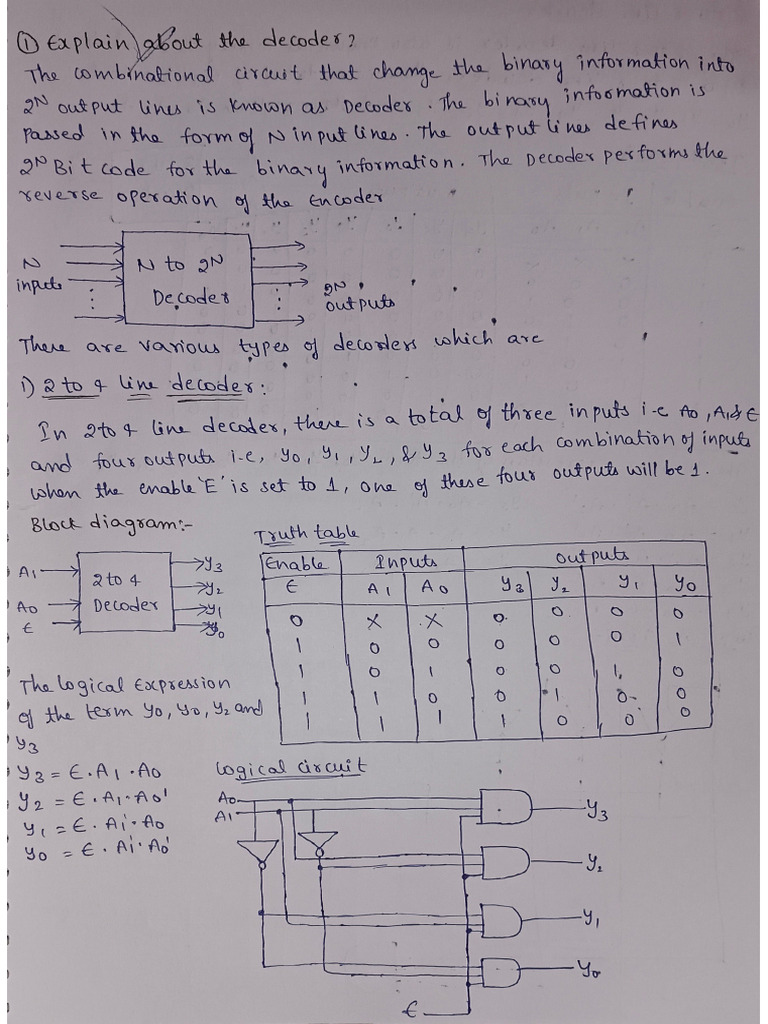 ① Explain about the decoder?
The combinational circuit that change the binary information into
2N output lines is known as Decoder. The binary information is
passed in the form of N input lines. The output lines defines
2N Bit code for the binary information. The Decoder performs the
reverse operation of the Encoder
N inputs
N to 2N Decoder
2N outputs
There are various types of decorders which are
i) 2 to 4 line decoder:
In 2to 4 line decoder, there is a total of three inputs i-e A0, A1 & E
and four outputs i-e, y0, y1, y2, & y3 for each combination of inputs
when the enable 'E' is set to 1, one of these four outputs will be 1.
Block diagram:-
A1
A0
E
2 to 4 Decoder
y3
y2
y1
y0
Truth table
Enable Inputs Outputs
E A1 A0 y3 y2 y1 y0
0 X X 0 0 0 0
1 0 0 0 0 0 1
1 0 1 0 0 1 0
1 1 0 0 1 0 0
1 1 1 1 0 0 0
The logical Expression
of the term y0, y0, y2 and
y3
y3 = E.A1.A0
y2 = E.A1.A0'
y1 = E.A1'.A0
y0 = E.A1'.A0'
Logical circuit
A0
A1
y3
y2
y1
y0
E